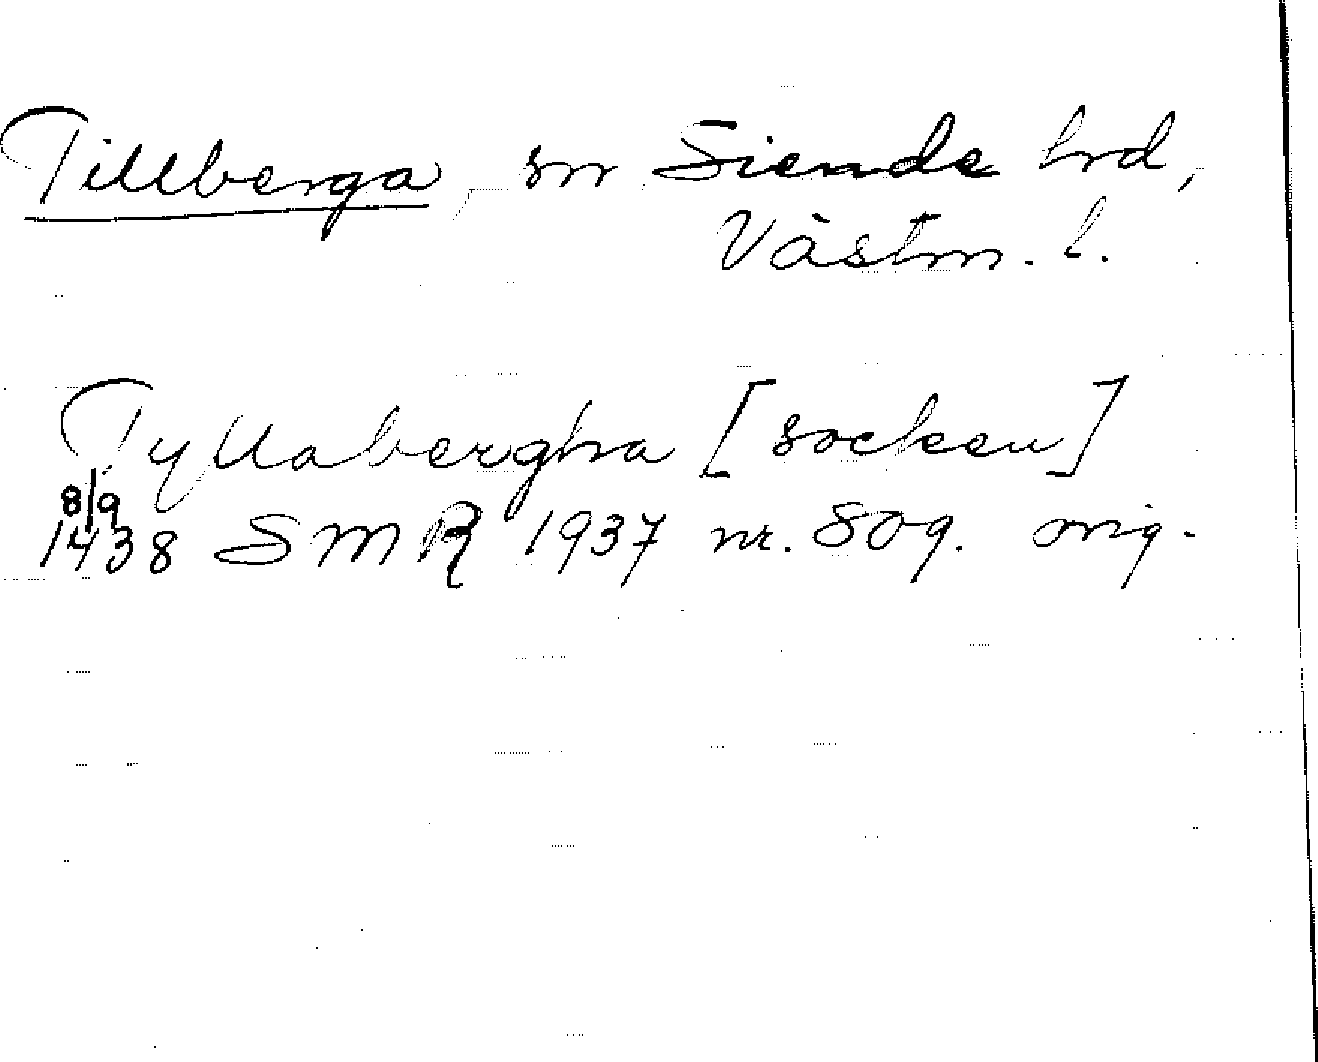 Tillberga, sn Siende hrd,
Västm. l.
Tyllabergha [socken]
8/9
1438 SMR 1937 nr. 809. orig.